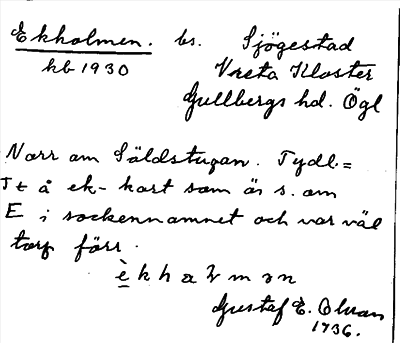 Ekholmen. bs. Sjögestad
kb 1930 Vreta Kloster
Gullbergs hd. Ögl
Norr om Säldstugan. Tydl=
t å ek- kort som är s. om
E i sockennamnet och var väl
torp förr.
è k h a m n
Gustaf E.
1736.